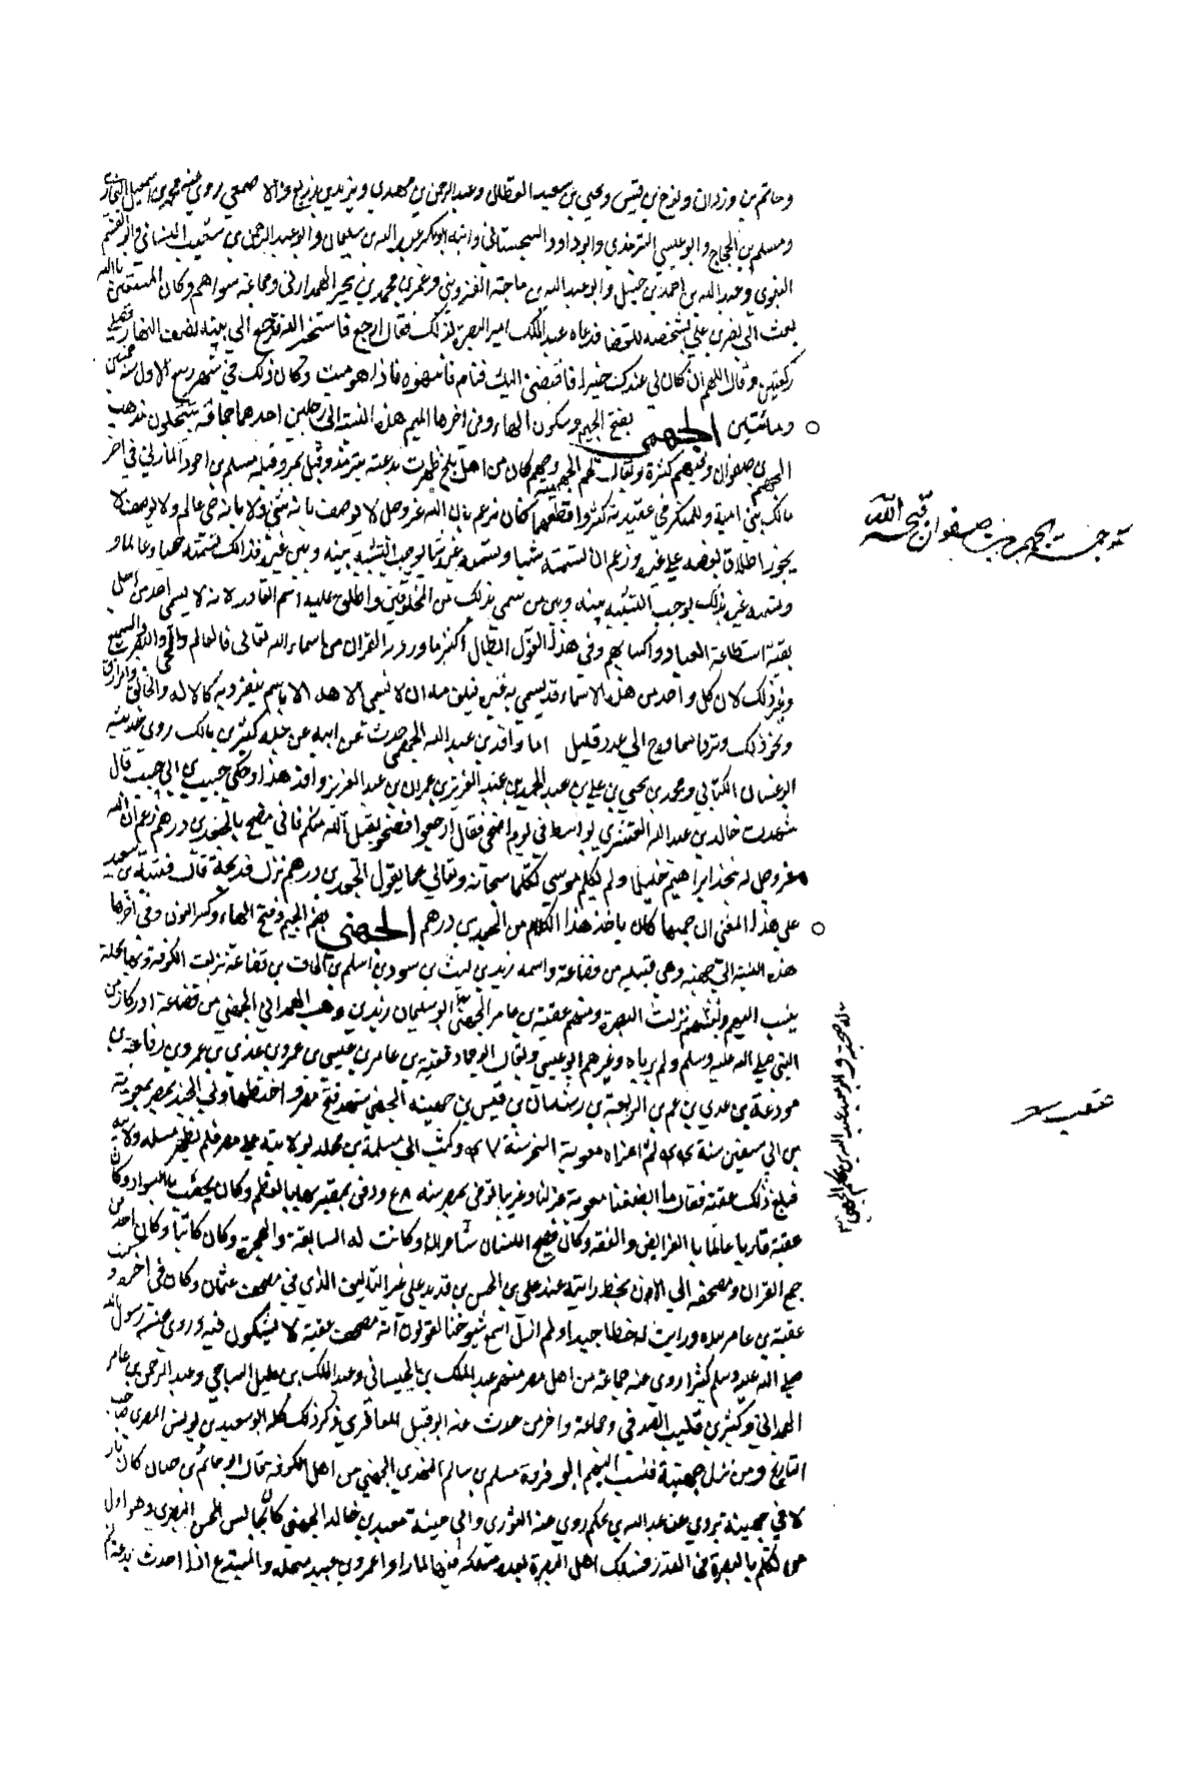 وحاتم بن وردان ونوح بن قيس ويحيى بن سعيد القطان وعبد الرحمن بن مهدي ويزيد بن زريع والاصمعي روى عنه محمد بن اسمعيل البخاري
ومسلم بن الحجاج وابو عيسى الترمذي وابو داود السجستاني وابنه ابو بكر عبد الله بن سليمان وابو عبد الرحمن بن شعيب النسائي وابو القسم
البغوي وعبد الله بن احمد بن حنبل وابو عبد الله بن ماجة القزويني وعمر بن محمد بن بجير الهمداني وجماعة سواهم وكان المستعين بالله
بعث الى نصر بن علي يشخصه للقضا فدعاه عبد الملك امير البصرة لذلك فقال ارجع فاستخير الله فرجع الى بيته نصف النهار فصلى
ركعتين وقال اللهم ان كان لي عندك خير فاقبضني اليك فنام فانبهوه فاذا هو ميت وكان ذلك في شهر ربيع الاول سنة خمسين
ومائتين الجهمي بفتح الجيم وسكون الهاء وفي اخرها الميم هذه النسبة الى رجلين احدهما جماعة ينتحلون مذهب
الجهم بن صفوان وفيهم كثرة ويقال لهم الجهمية وجهم كان من اهل بلخ ظهرت بدعته بترمذ وقتل بمرو قتله مسلم بن احوز المازني في اخر
مالك بني امية والمنكر في عقيدته كثير وافظعها كان يزعم بان الله عز وجل لا يوصف بانه شي ولا بانه حي عالم ولا يوصف بما
يجوز اطلاق بعضه على غيره وزعم ان تسميته شيا وتسمية غيره شيا يوجب التشبيه بينه وبين غيره وكذلك تسميته حيا وعالما و
وتسمية غيره بذلك يوجب التشبيه بينه وبين من سمي بذلك من المخلوقين واطلق عليه اسم القادر لانه لا يسمي احد من اهل
بقية استطاعة العباد واكسابهم وفي هذا القول ابطال اكثر ما ورد به القران من اسماء الله تعالى كالعالم والحي والبصير والسميع
وغير ذلك لان كل واحد من هذه الاسماء قد يسمى به غيره فيلزمه ان لا يسمي الاله الا باسم ينفرد به كالاله والخالق والرازق
ونحو ذلك وترد اسماوه الى عدد قليل اما وافد بن عبد الله الجهمي حدث عن ابيه عن جده كثير بن مالك روى حديثه
ابو غسان الكناني ومحمد بن يحيى بن علي بن عبد الحميد بن عبد العزيز بن عمران بن عبد العزيز وافد هذا وحكي حبيب بن ابي حبيب قال
شهدت خالد بن عبد الله القسري بواسط في يوم اضحى فقال ارجعوا فضحوا يقبل الله منكم فاني مضح بالجعد بن درهم زعم ان الله
عز وجل لم يتخذ ابراهيم خليلا ولم يكلم موسى تكليما سبحانه وتعالى عما يقول الجعد بن درهم نزل فذبحه قال قتيبة بن سعيد
على هذا المعنى ان جهما كان ياخذ هذا الكلام من الجعد بن درهم الجهني بضم الجيم وفتح الهاء وكسر النون وفي اخرها
هذه النسبة الى جهينة وهي قبيلة من قضاعة واسمه زيد بن ليث بن سود بن اسلم بن الحاف بن قضاعة نزلت الكوفة وبها محلة
ينسب اليهم وبعضهم نزلت البصرة ومنهم عقبة بن عامر الجهني ابو سليمان زيد بن وهب الهمداني الجهني من قضاعة ادرك زمن
النبي صلى الله عليه وسلم ولم يراه وغيرهم ابو عيسى ويقال ابو حماد عقبة بن عامر بن عيسى بن عمرو بن عدي بن عمرو بن رفاعة بن
مودعة بن عدي بن غنم بن الربعة بن رشدان بن قيس بن جهينة الجهني شهد فتح مصر واختطها وولي الجند بمصر لمعوية
بن ابي سفين سنة ٤٤ ثم اغزاه معوية البحر سنة ٤٧ وكتب الى مسلمة بن مخلد بولايته على مصر فلم يظهر مسلمة ولايته
فبلغ ذلك عقبة فقال ما انصفنا معوية عزلنا وغربنا توفي بمصر سنة ٥٨ ودفن بمقبرتها بالمقطم وكان يخضب بالسواد وكان
عقبة قاريا عالما بالفرايض والفقه وكان فصيح اللسان شاعرا وكانت له السابقة والهجرة وكان كاتبا وكان احد من
جمع القران ومصحفه الى الان بخطه رايته عند علي بن الحسن بن قديد على غير التاليف الذي في مصحف عثمان وكان في اخره و
عقبة بن عامر بيده ورايت له خطا جيدا ولم ازل اسمع شيوخنا يقولون انه مصحف عقبة لا يشكون فيه وروى عن رسول الله
صلى الله عليه وسلم كثيرا روى عنه جماعة من اهل مصر منهم عبد الملك بن الجيشاني وعبد الملك بن مليل السلجي وعبد الرحمن بن عامر
الهمداني وكثير بن قليب الصدفي وجماعة واخر من حدث عنه ابو قبيل المعافري ذكر ذلك كله ابو سعيد بن يونس المصري صاحب
التاريخ ومن نزل جهينة فنسب اليهم ابو فروة مسلم بن سالم النهدي الجهني من اهل الكوفة قال ابو حاتم بن حبان كان نازلا
في جهينة يروي عن عبد الله بن عكيم روى عنه الثوري وابن عيينة ومعبد بن خالد الجهني كان يجالس الحسن البصري وهو اول
من تكلم بالبصرة في القدر فسلك اهل البصرة بعده مسلكه فيها لما راوا عمرو بن عبيد ينتحله والمبتدع اذا احدث بدعة
ترجمة الجهم بن صفوان قبحه الله
له صحبة وابو معبد عبد الله بن عكيم الجهني